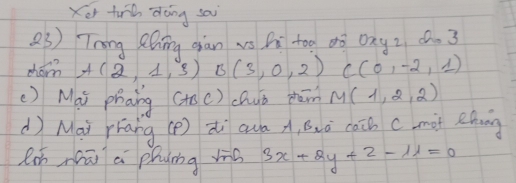 Xét tính đúng sai
23) Trong không gian vs hệ toạ độ Oxyz, cho 3
điểm A(2, 1, 3) B(3, 0, 2) C(0, -2, 1)
c) Mặt phẳng (ABC) chứa điểm M(1, 2, 2)
d) Mặt phẳng (P) đi qua A, B và cách C một khoảng
lớn nhất có phương trình 3x + 2y + z - 11 = 0